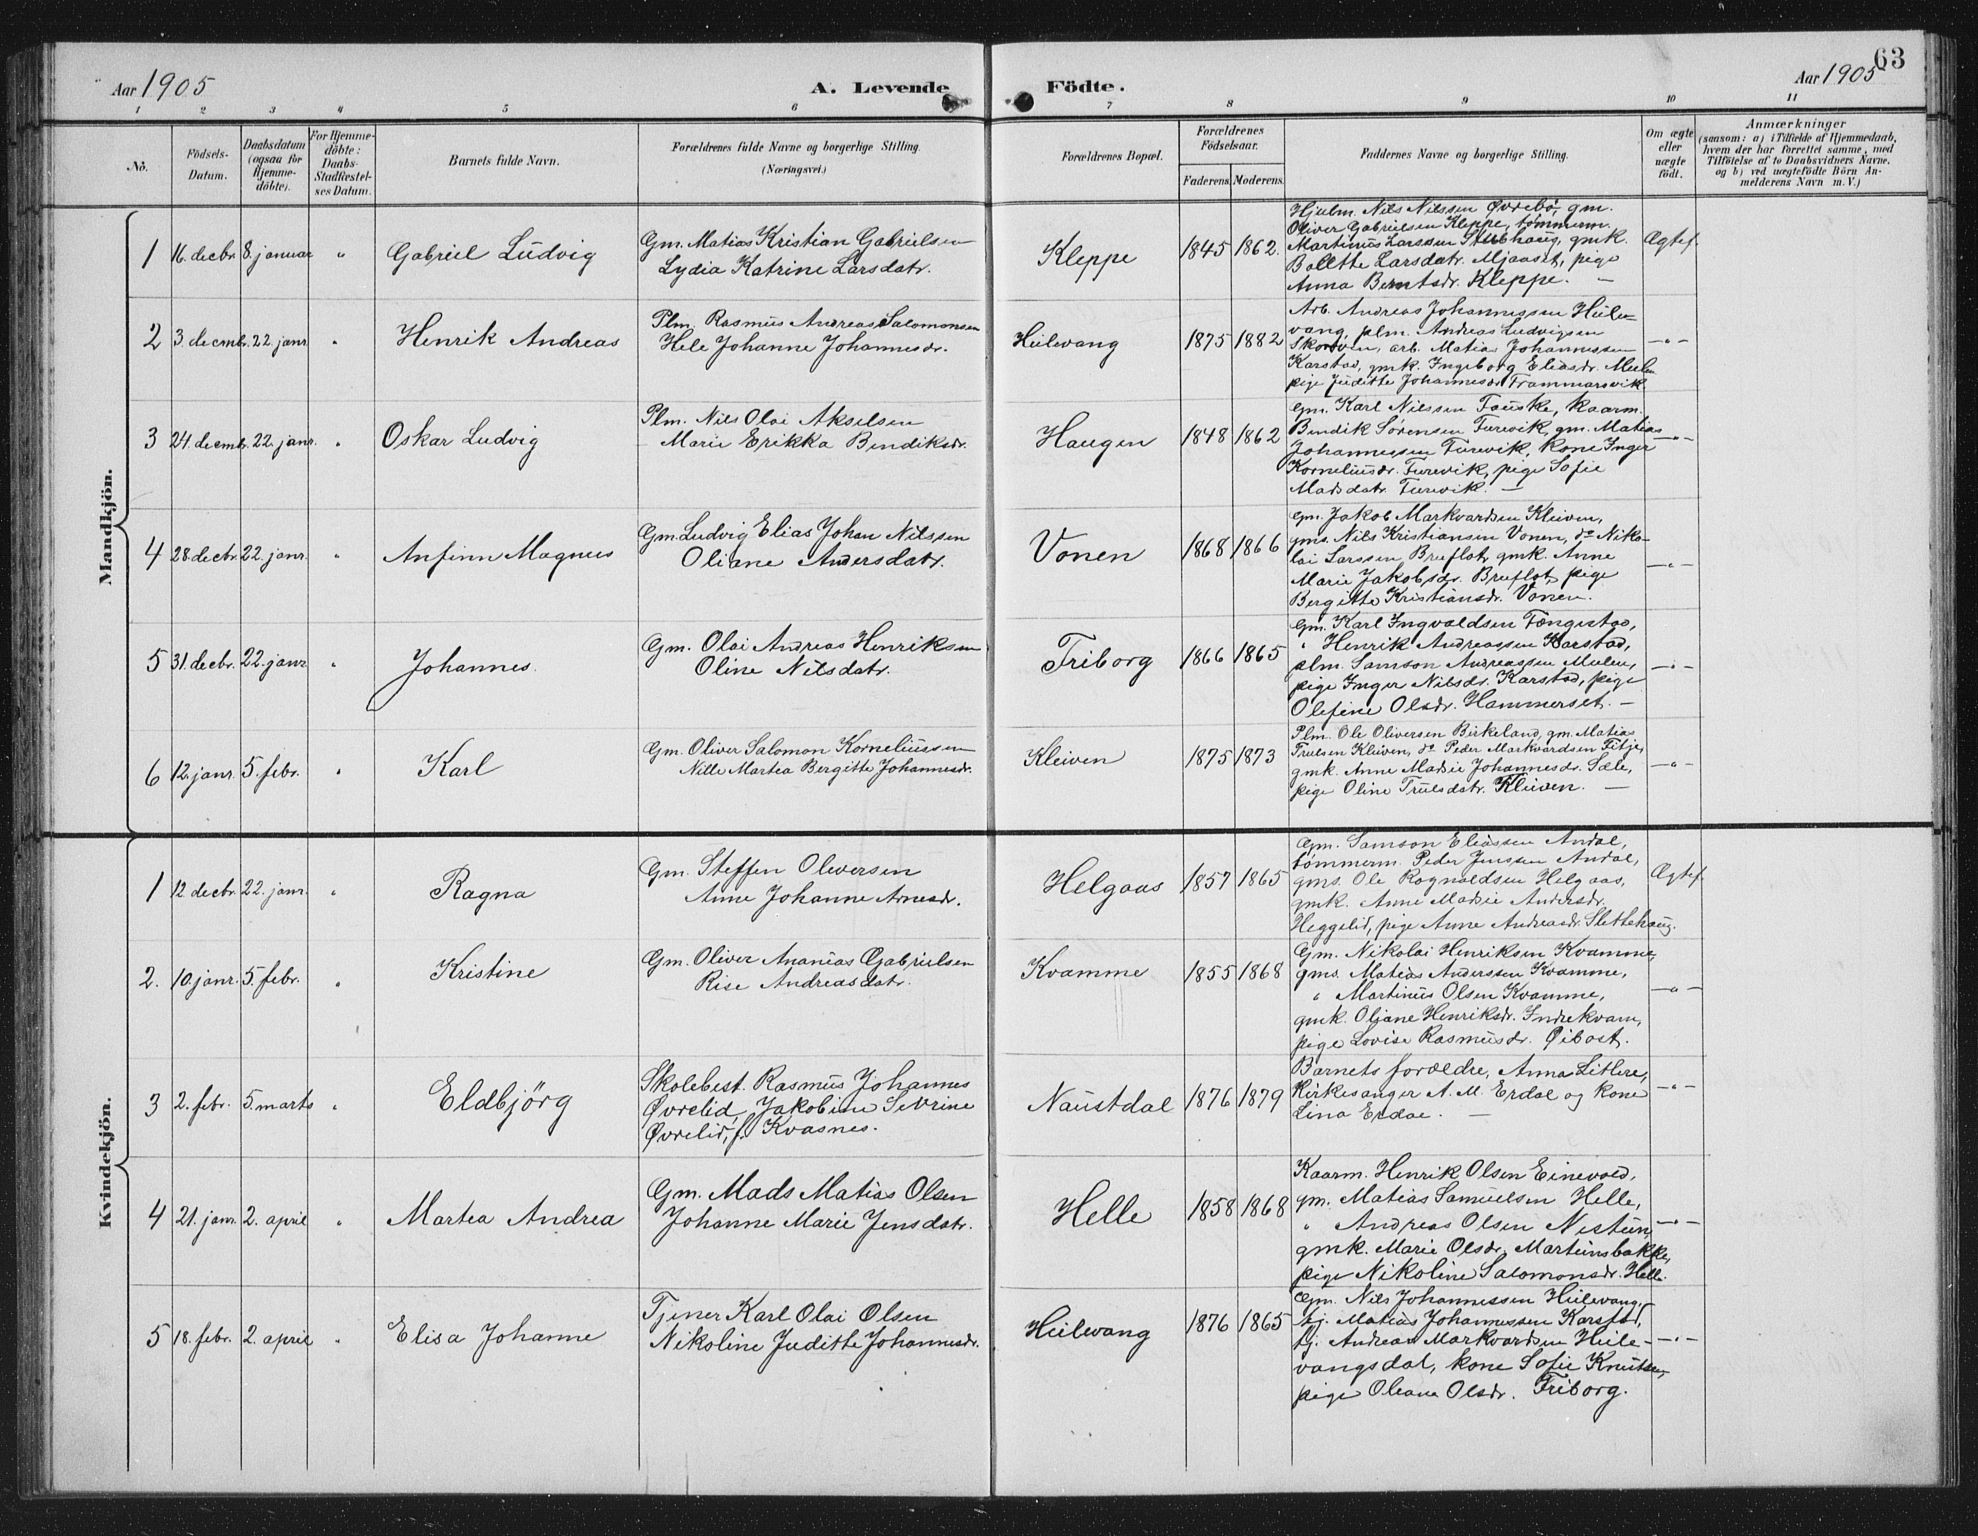 63
Aar 1905
A. Levende
Födte.
Aar 1905
1 2 3 4 5 6 7 8 9 10 11
No.
Födsels-Datum.
Daabsdatum (ogsaa for Hjemme-döbte).
For Hjemme-döbte: Daabs-Stadfestel-ses Datum.
Barnets fulde Navn.
Forældrenes fulde Navne og borgerlige Stilling.
(Næringsvei.)
Forældrenes Bopæl.
Forældrenes Födselsaar.
Faderens. Moderens.
Faddernes Navne og borgerlige Stilling.
Om ægte eller uægte født.
Anmærkninger
(saasom: a) i Tilfælde af Hjemmedaab,
hvem der har forrettet samme, med
Tilföielse af to Daabsvidners Navne.
og b) ved uægtefödte Börn An-
melderens Navn m. V.)
Mandkjön.
1 16. decbr. 8. januar " Gabriel Ludvig
Gm. Matias Kristian Gabrielsen
Lydia Katrine Larsdatr.
Kleppe 1845 1862.
Hjulm. Nils Nilssen Øvrebø, gm.
Oliver Gabrielsen Kleppe, tømmerm.
Martinus Larssen Stubhaug, gmk.
Bollette Larsdatr. Mjaaset, pige
Anna Berntsdr. Kleppe. —
Ægtef.
2 3. decmb. 22. janr. " Henrik Andreas
Plm. Rasmus Andreas Salomonsen
Hele Johanne Johannesdr.
Hüllevang 1875 1882
Arb. Andreas Johannessen Hüle-
vang, plm. Andreas Ludvigsen
Skorven, arb. Matias Johannessen
Karstad, gmk. Ingeborg Eliasdr. Mulen
pige Juditte Johannesdr. Frammarsvik.
—"—
3 24. decmb. 22. janr. " Oskar Ludvig
Plm. Nils Olai Akselsen
Marie Erikka Bendiksdr.
Haugen 1848 1862
Gm. Karl Nilssen Fauske, kaarm.
Bendik Sørensen Furevik, gm. Matias
Johannessen Furevik, kone Inger
Korneliusdr. Furevik, pige Sofie
Madsdatr. Furevik. —
—"—
4 28. decbr. 22. janr. " Anfinn Magnus
Gm. Ludvig Elias Johan Nilssen
Oliane Andersdatr.
Vonen 1868 1866
Gm. Jakob Markvardsen Kleiven,
gms. Nils Kristiansen Vonen, do Niko-
lai Larssen Bruflot, gmk. Anne
Marie Jakobsdr. Bruflot, pige
Bergitte Kristiansdr. Vonen.
—"—
5 31. decbr. 22. janr. " Johannes.
Gm. Olai Andreas Henriksen
Oline Nilsdatr.
Friborg 1866 1865
Gm. Karl Ingvaldsen Fængestad,
" Henrik Andreassen Karstad,
plm. Samson Andreassen Mulen,
pige Inger Nilsdr. Karstad, pige
Olefine Olsdr. Hammerset. —
—"—
6 12. janr. 5. febr. " Karl
Gm. Oliver Salomon Korneliussen
Nille Martea Bergitte Johannesdr.
Kleiven 1875 1873
Plm. Ole Oliversen Birkeland, gm. Matias
Trulsen Kleiven, do Peder Markvardsen Fitje,
gmk. Anne Marie Johannesdr. Sæle,
pige Oline Trulsdatr. Kleiven. —
—"—
Kvindekjön.
1 12. decbr. 22. janr. " Ragna
Gm. Steffen Oliversen
Anne Johanne Arnesdr.
Helgaas 1857 1865
Gm. Samson Eliassen Andal,
tømmerm. Peder Jenssen Andal,
gms. Ole Rognaldsen Helgaas,
gmk. Anne Marie Andersdr.
Heggelid, pige Anne Andreasdr. Slettehaug.
Ægtef.
2. 10. janr. 5. febr. " Kristine
Gm. Oliver Ananias Gabrielsen
Rise Andreasdatr.
Kvamme 1855 1868
Gm. Nikolai Henriksen Kvamme,
gms. Matias Anderssen Kvamme,
" Martinus Olsen Kvamme,
gmk. Oljane Henriksdr. Indrekvam,
pige Lovise Rasmusdr. Øibost.
—"—
3 2. febr. 5. marts " Eldbjörg
Skolebest. Rasmus Johannes
Øvrelid, Jakobine Sevrine
Øvrelid, f. Kvasnes.
Naustdal 1876 1879
Barnets forældre, Anna Litlere,
Kirkesanger A. M. Erdal og kone
Lina Erdal. —
—"—
4 21. janr. 2. april " Martea Andrea
Gm. Mads Matias Olsen
Johanne Marie Jensdatr.
Helle 1858 1868
Kaarm. Henrik Olsen Einevold,
gm. Matias Samuelsen Helle,
" Andreas Olsen Nistun,
gmk. Marie Olsdr. Martinsbakke,
pige Nikoline Salomonsdr. Helle.
—"—
5 18. febr. 2. april " Elisa Johanne
Tjener Karl Olai Olsen
Nikoline Juditte Johannesdr.
Hülevang 1876 1865
Gm. Nils Johannessen Hülevang,
tj. Matias Johannessen Karstad,
tj. Andreas Markvardsen Hüle-
vangsdal, kone Sofie Knutsen,
pige Oliana Olsdr. Friborg.
—"—